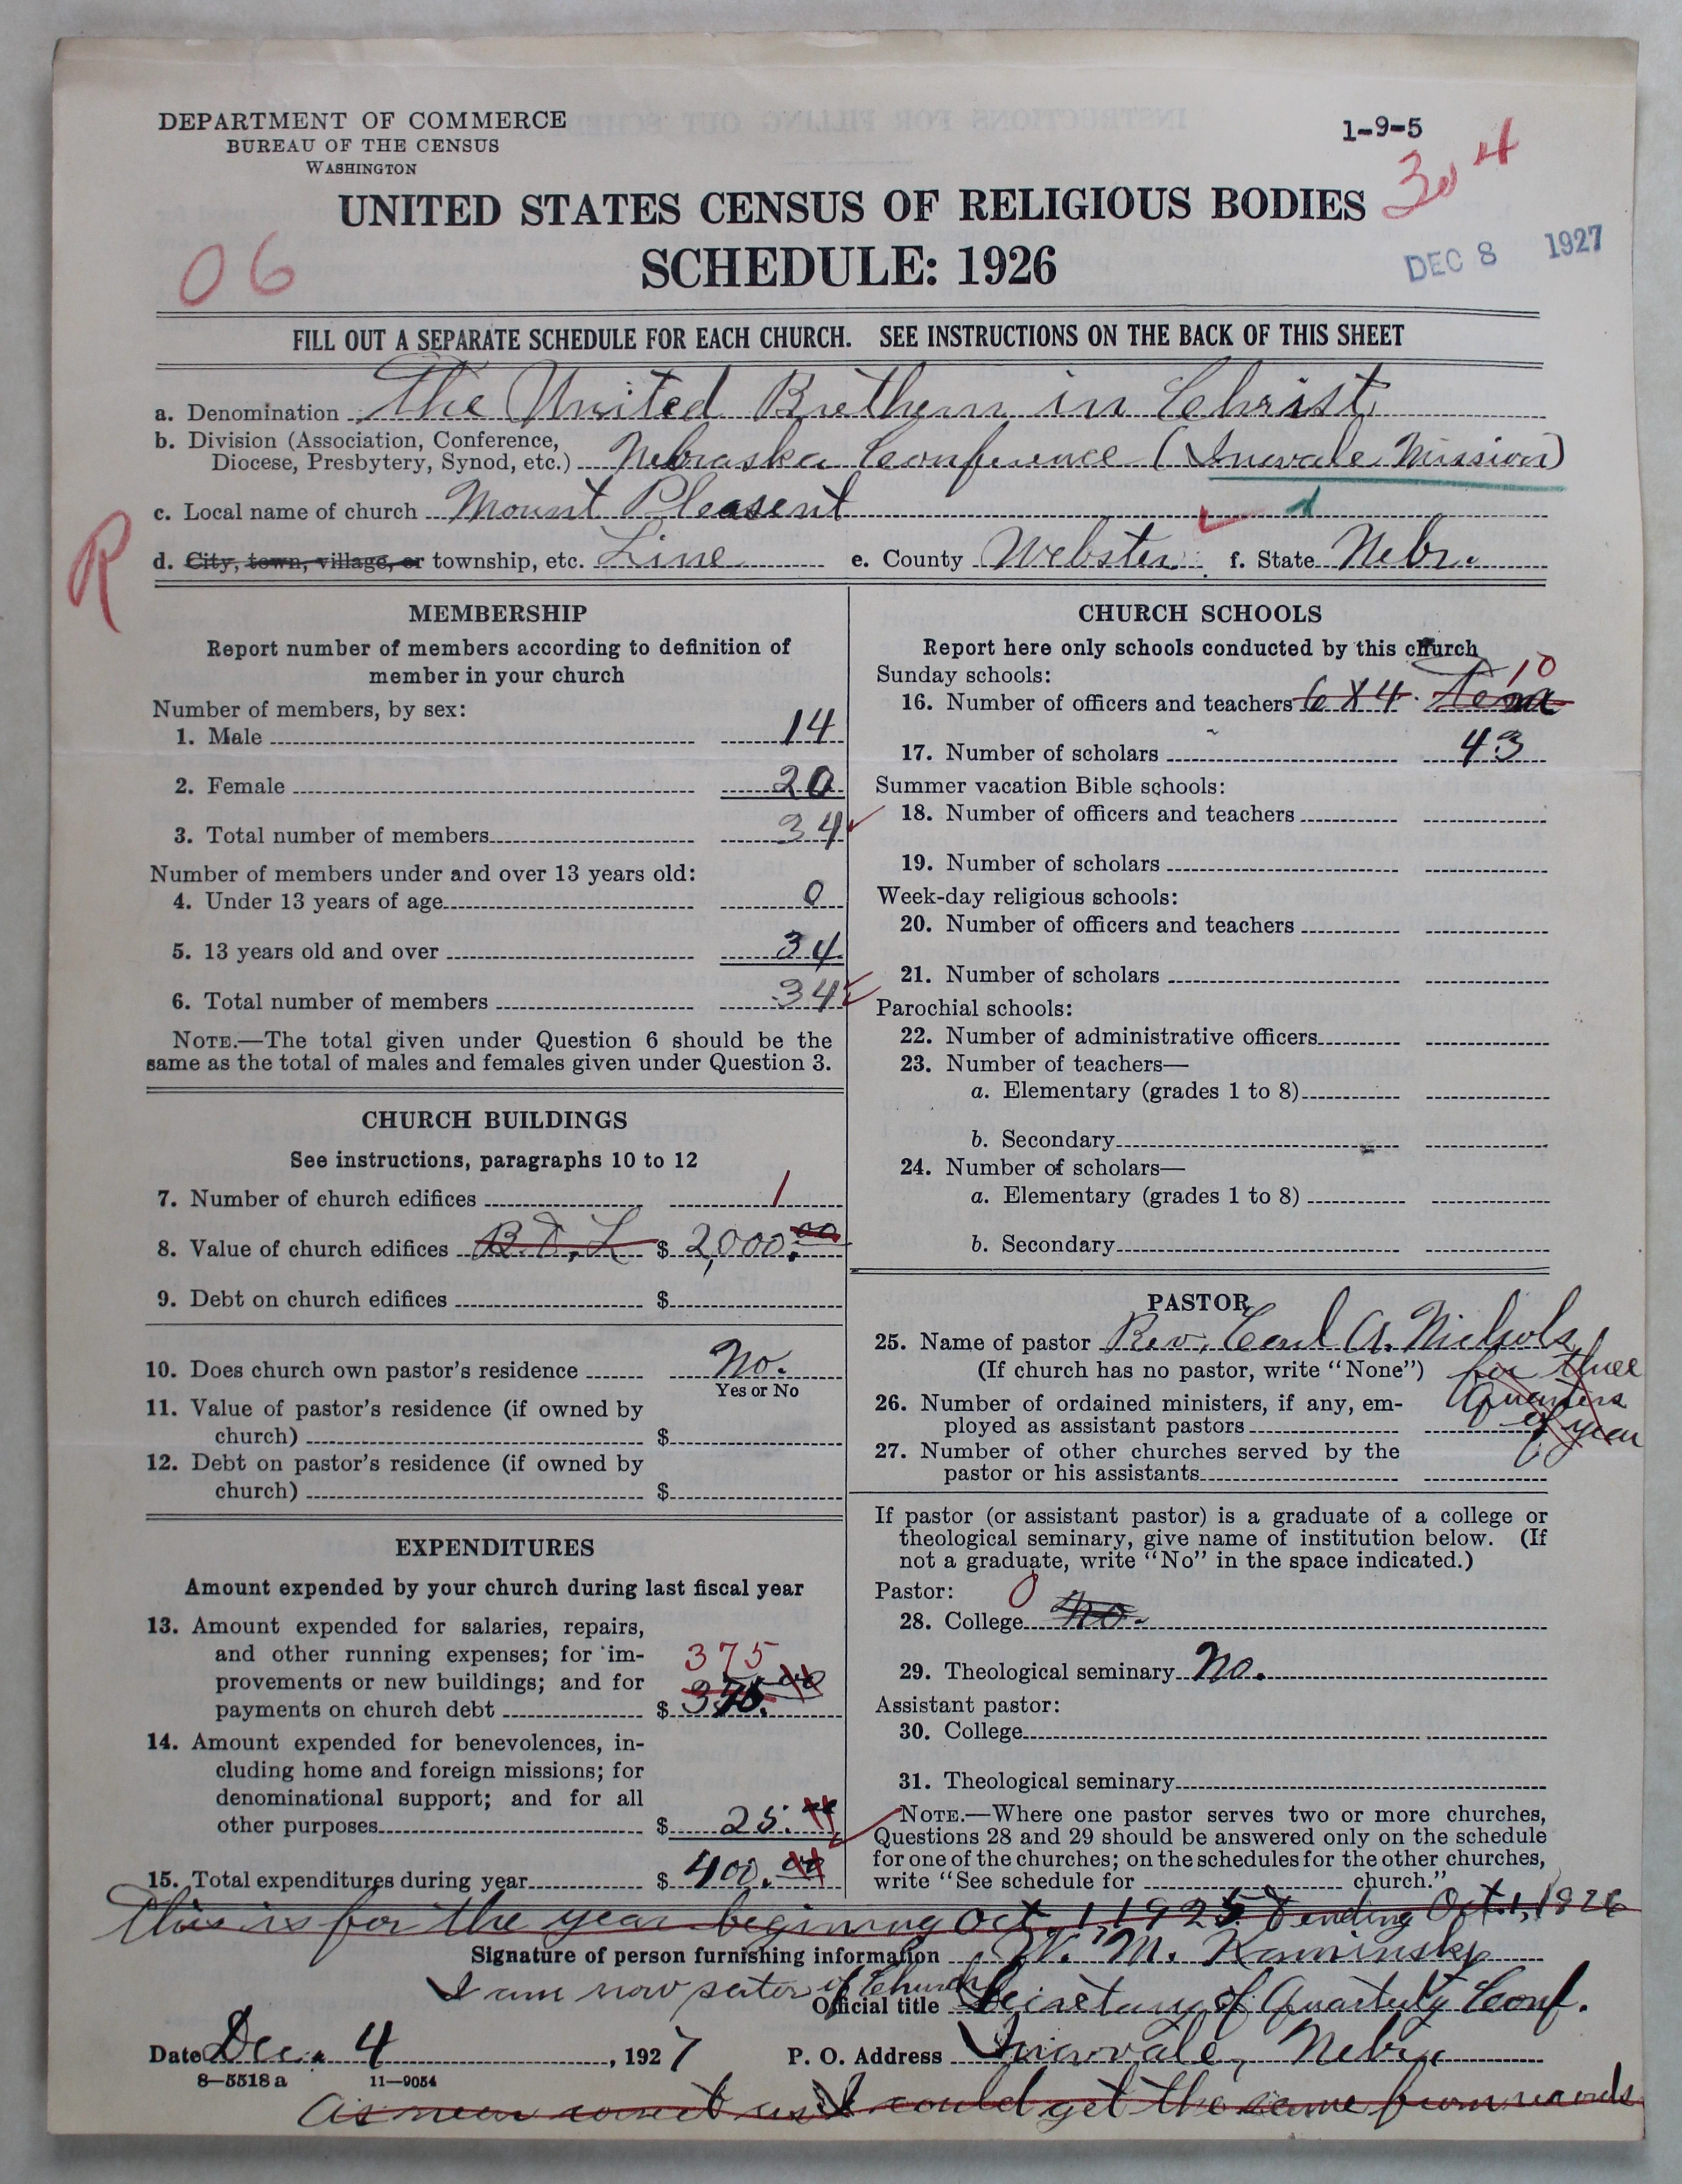 DEPARTMENT OF COMMERCE
BUREAU OF THE CENSUS
WASHINGTON
1-9-5
304
UNITED STATES CENSUS OF RELIGIOUS BODIES
SCHEDULE: 1926
06
DEC 8 1927
FILL OUT A SEPARATE SCHEDULE FOR EACH CHURCH. SEE INSTRUCTIONS ON THE BACK OF THIS SHEET
a. Denomination The United Brethern in Christ
b. Division (Association, Conference,
Diocese, Presbytery, Synod, etc.) Nebraska Conference (Inavale Mission)
c. Local name of church Mount Pleasent
R
d. City, town, village, or township, etc. Line e. County Webster f. State Nebr.
MEMBERSHIP
Report number of members according to definition of
member in your church
Number of members, by sex:
1. Male 14
2. Female 20
3. Total number of members 34
Number of members under and over 13 years old:
4. Under 13 years of age 0
5. 13 years old and over 34
6. Total number of members 34
NOTE.—The total given under Question 6 should be the
same as the total of males and females given under Question 3.
CHURCH BUILDINGS
See instructions, paragraphs 10 to 12
7. Number of church edifices 1
8. Value of church edifices $ 2,000.00
9. Debt on church edifices $
10. Does church own pastor's residence No.
Yes or No
11. Value of pastor's residence (if owned by
church) $
12. Debt on pastor's residence (if owned by
church) $
EXPENDITURES
Amount expended by your church during last fiscal year
13. Amount expended for salaries, repairs,
and other running expenses; for im-
provements or new buildings; and for
payments on church debt $ 375
14. Amount expended for benevolences, in-
cluding home and foreign missions; for
denominational support; and for all
other purposes $ 25.00
15. Total expenditures during year $ 400.00
CHURCH SCHOOLS
Report here only schools conducted by this church
Sunday schools:
16. Number of officers and teachers 6 X 4 10
17. Number of scholars 43
Summer vacation Bible schools:
18. Number of officers and teachers
19. Number of scholars
Week-day religious schools:
20. Number of officers and teachers
21. Number of scholars
Parochial schools:
22. Number of administrative officers
23. Number of teachers—
a. Elementary (grades 1 to 8)
b. Secondary
24. Number of scholars—
a. Elementary (grades 1 to 8)
b. Secondary
PASTOR
25. Name of pastor Rev. Carl A. Nichols
(If church has no pastor, write "None") for three
Quarters
of year
26. Number of ordained ministers, if any, em-
ployed as assistant pastors
27. Number of other churches served by the
pastor or his assistants
If pastor (or assistant pastor) is a graduate of a college or
theological seminary, give name of institution below. (If
not a graduate, write "No" in the space indicated.)
Pastor:
28. College 0 No.
29. Theological seminary No.
Assistant pastor:
30. College
31. Theological seminary
NOTE.—Where one pastor serves two or more churches,
Questions 28 and 29 should be answered only on the schedule
for one of the churches; on the schedules for the other churches,
write "See schedule for church."
This is for the year begining Oct. 1, 1925 & ending Oct. 1, 1926
Signature of person furnishing information W. M. Kaminsky
I am now paster of Church
Official title Secretary of Quarterly Conf.
Date Dec. 4, 1927 P. O. Address Inavale, Nebr.
8-5518 a 11-9054
As near correct as I could get the same from records